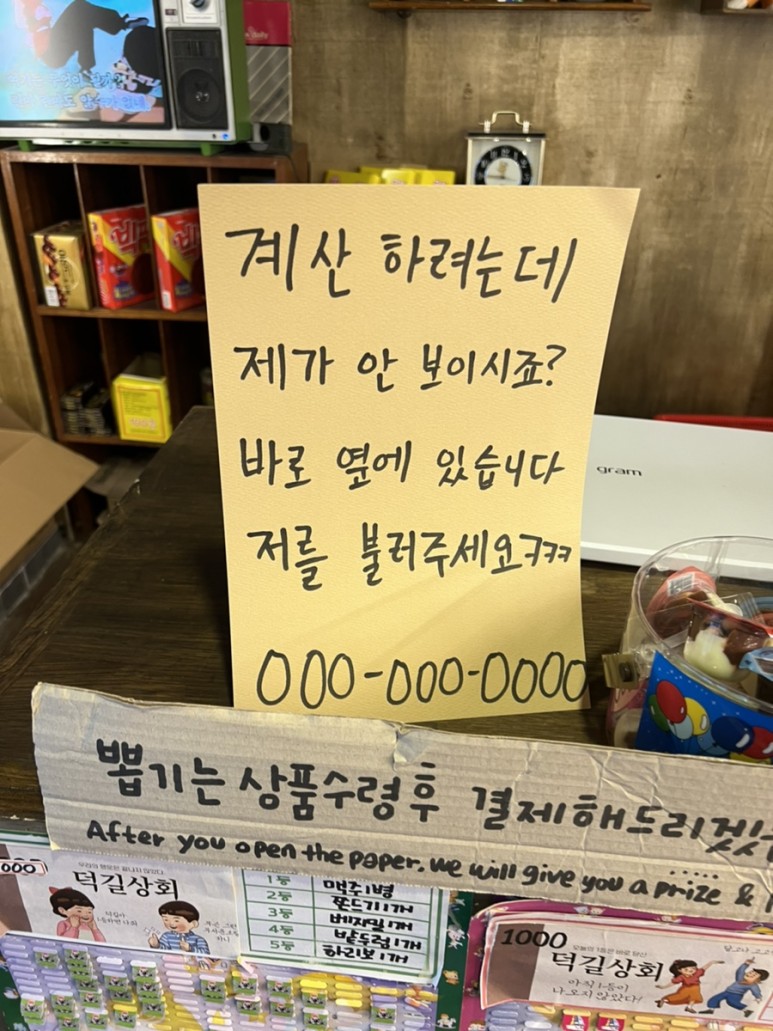 계산 하려는데
제가 안 보이시죠?
바로 옆에 있습니다
저를 불러주세요ㅋㅋㅋ
000-000-0000
gram
뽑기는 상품수령후 결제해드리겠
After you open the paper. we will give you a prize &
덕길상회
1등 맥주1병
2등 쫀드기1개
3등 베지밀1개
4등 밭두렁1개
5등 하리보1개
1000
덕길상회
아직 1등이
나오지 않았다!